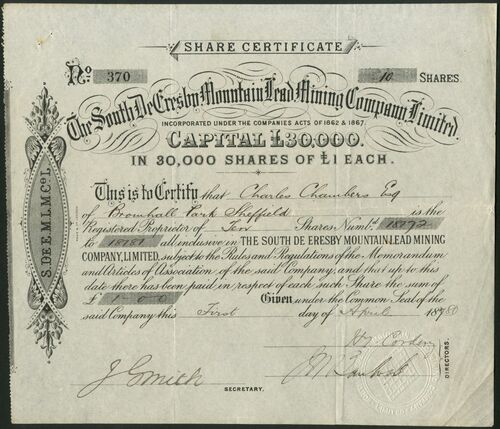 SHARE CERTIFICATE
No 370
10 SHARES
The South De Eresby Mountain Lead Mining Company, Limited.
INCORPORATED UNDER THE COMPANIES ACTS OF 1862 & 1867.
CAPITAL £30,000.
IN 30,000 SHARES OF £1 EACH.
S. DE E. M. L. M. Co. L.
This is to Certify that Charles Chambers Esq
of Broomhall Park Sheffield is the
Registered Proprietor of Ten Shares Numbd. 18172
to 18181 all inclusive in THE SOUTH DE ERESBY MOUNTAIN LEAD MINING
COMPANY, LIMITED, subject to the Rules and Regulations of the Memorandum
and Articles of Association of the said Company; and that up to this
date there has been paid in respect of each such Share the sum of
£ 1-0-0 Given under the Common Seal of the
said Company this First day of April 1880
J Smith
SECRETARY.
DIRECTORS.